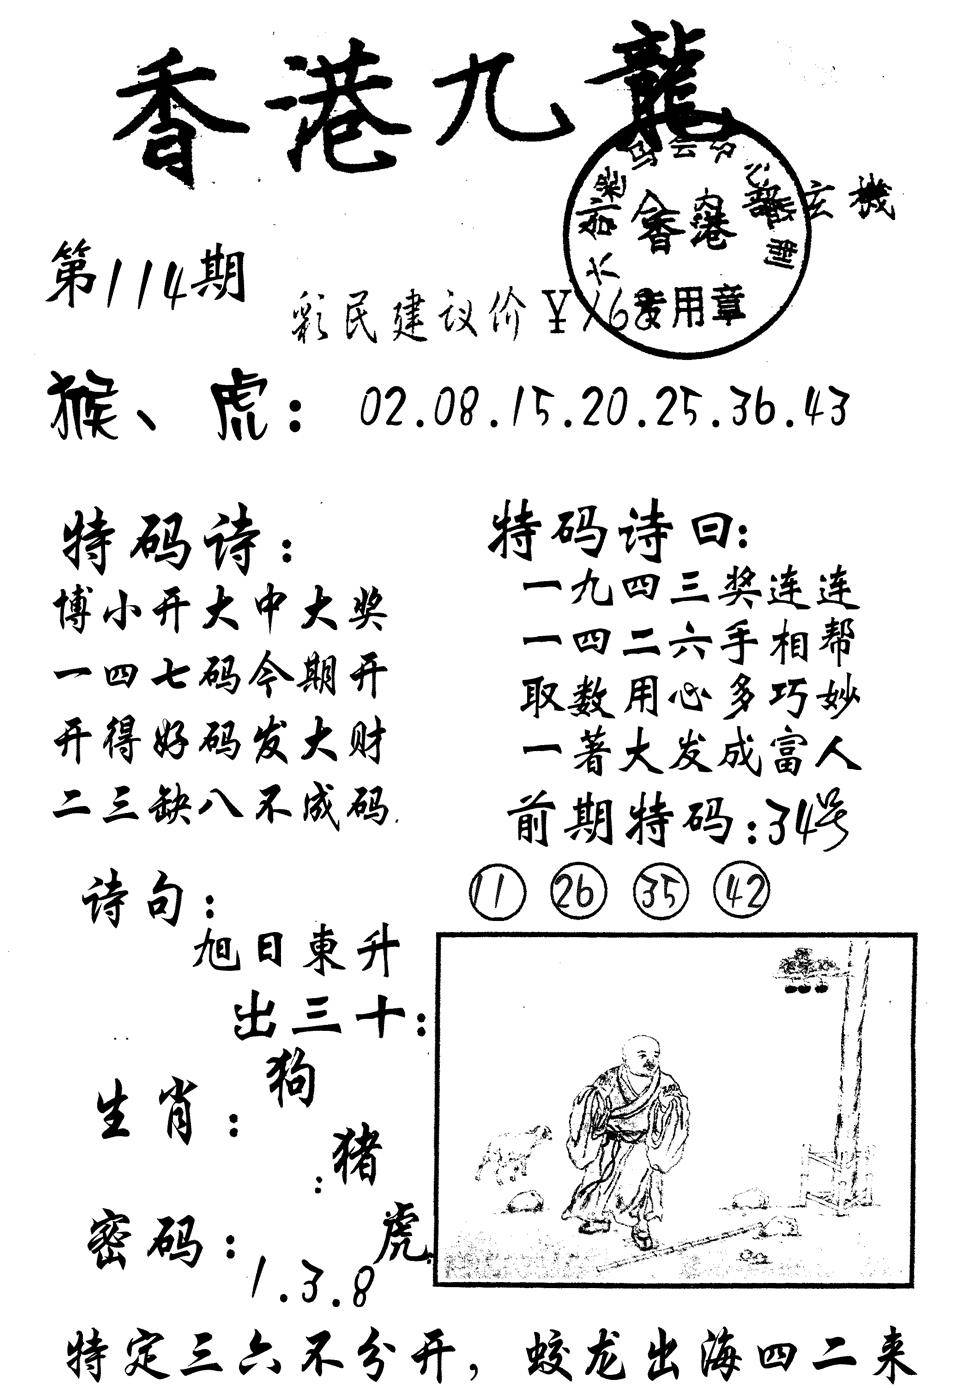 香港九龍
香港
玄機
第114期
专用章
彩民建议价￥168
猴、虎：02.08.15.20.25.36.43
特码诗：
博小开大中大奖
一四七码今期开
开得好码发大财
二三缺八不成码.
特码诗曰：
一九四三奖连连
一四二六手相帮
取数用心多巧妙
一著大发成富人
前期特码：34号
11 26 35 42
诗句：
旭日東升
出三十：
生肖：狗
：猪
虎
密码：
1.3.8
特定三六不分开，蛟龙出海四二来